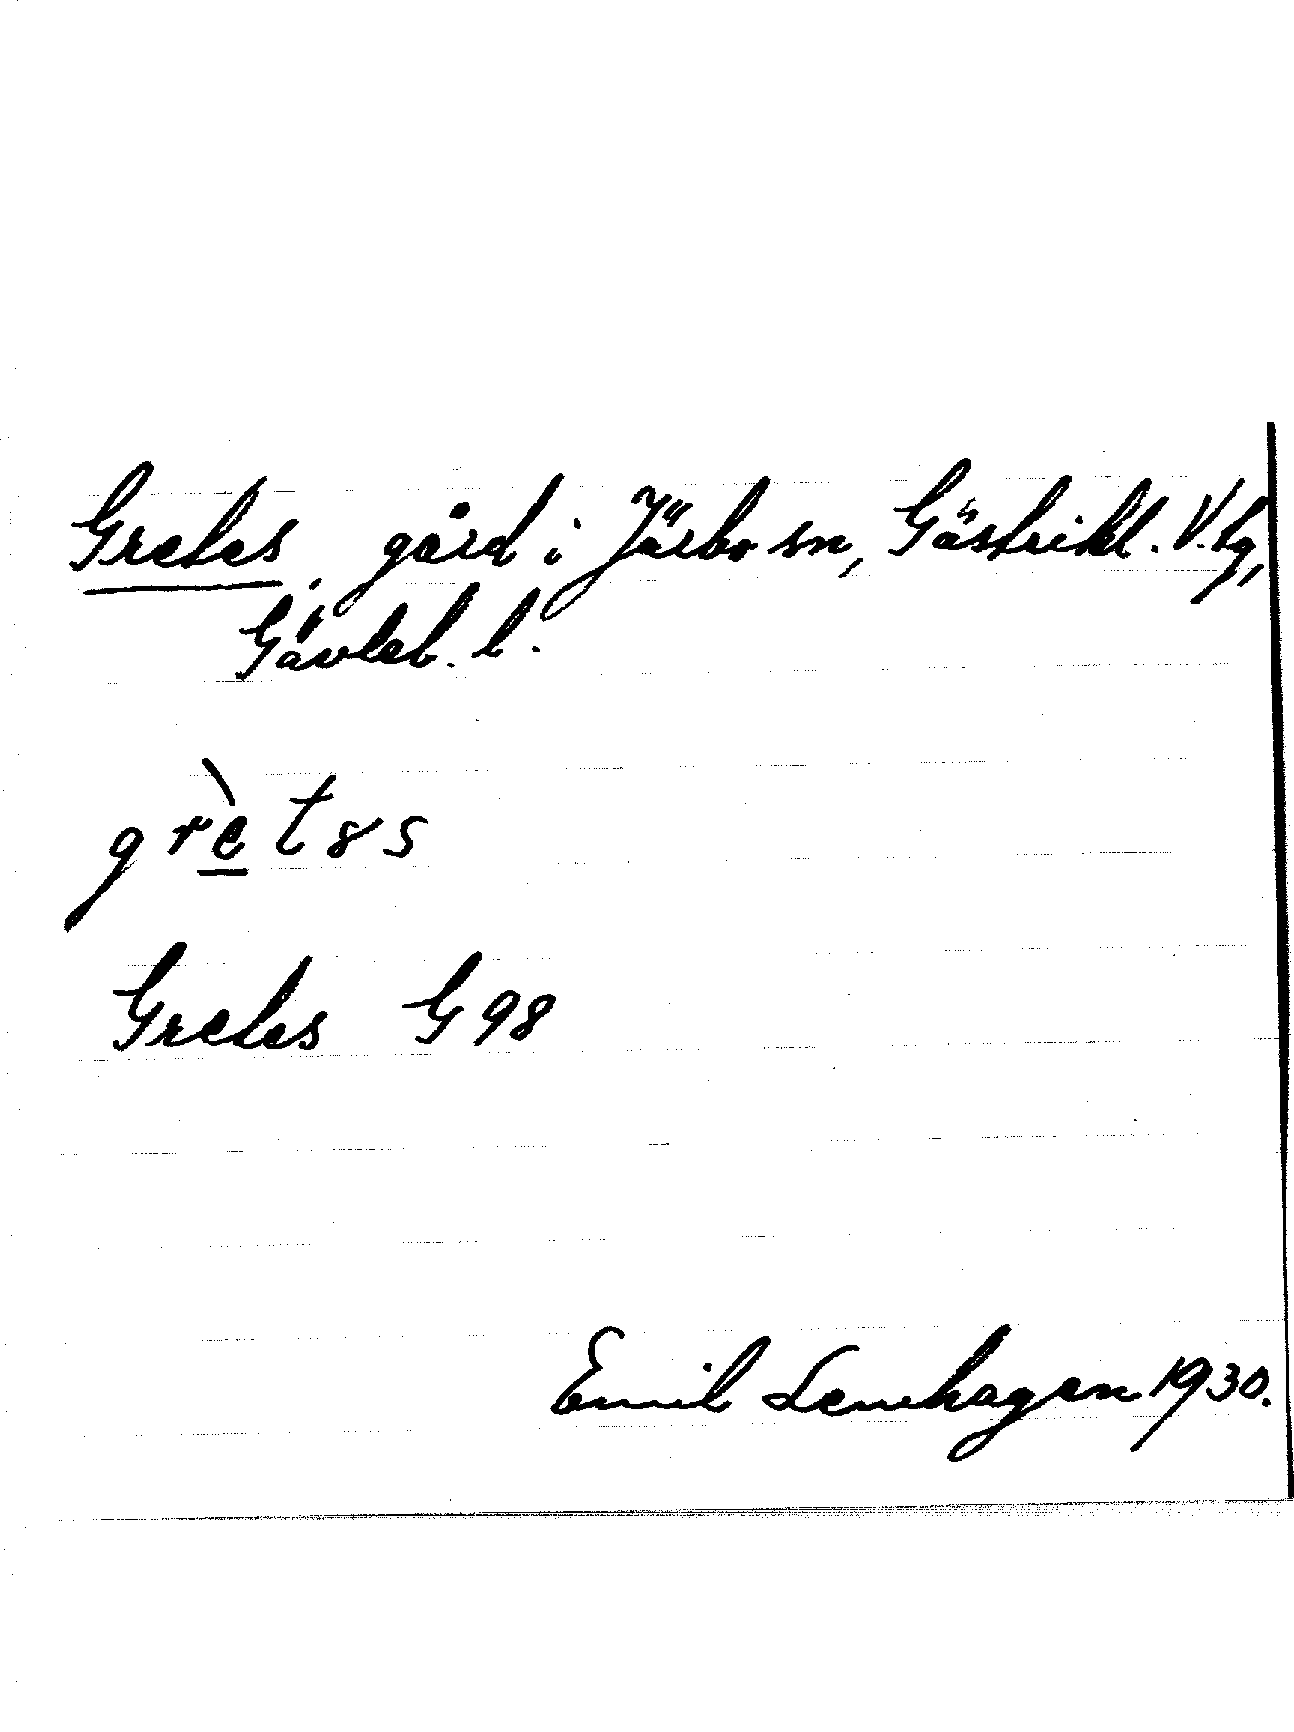 Gretes, gård i Järbo sn, Gästrikl. V. tg,
Gävleb. l.
grèt8s
Gretes G 98
Emil Lenhagen 1930.